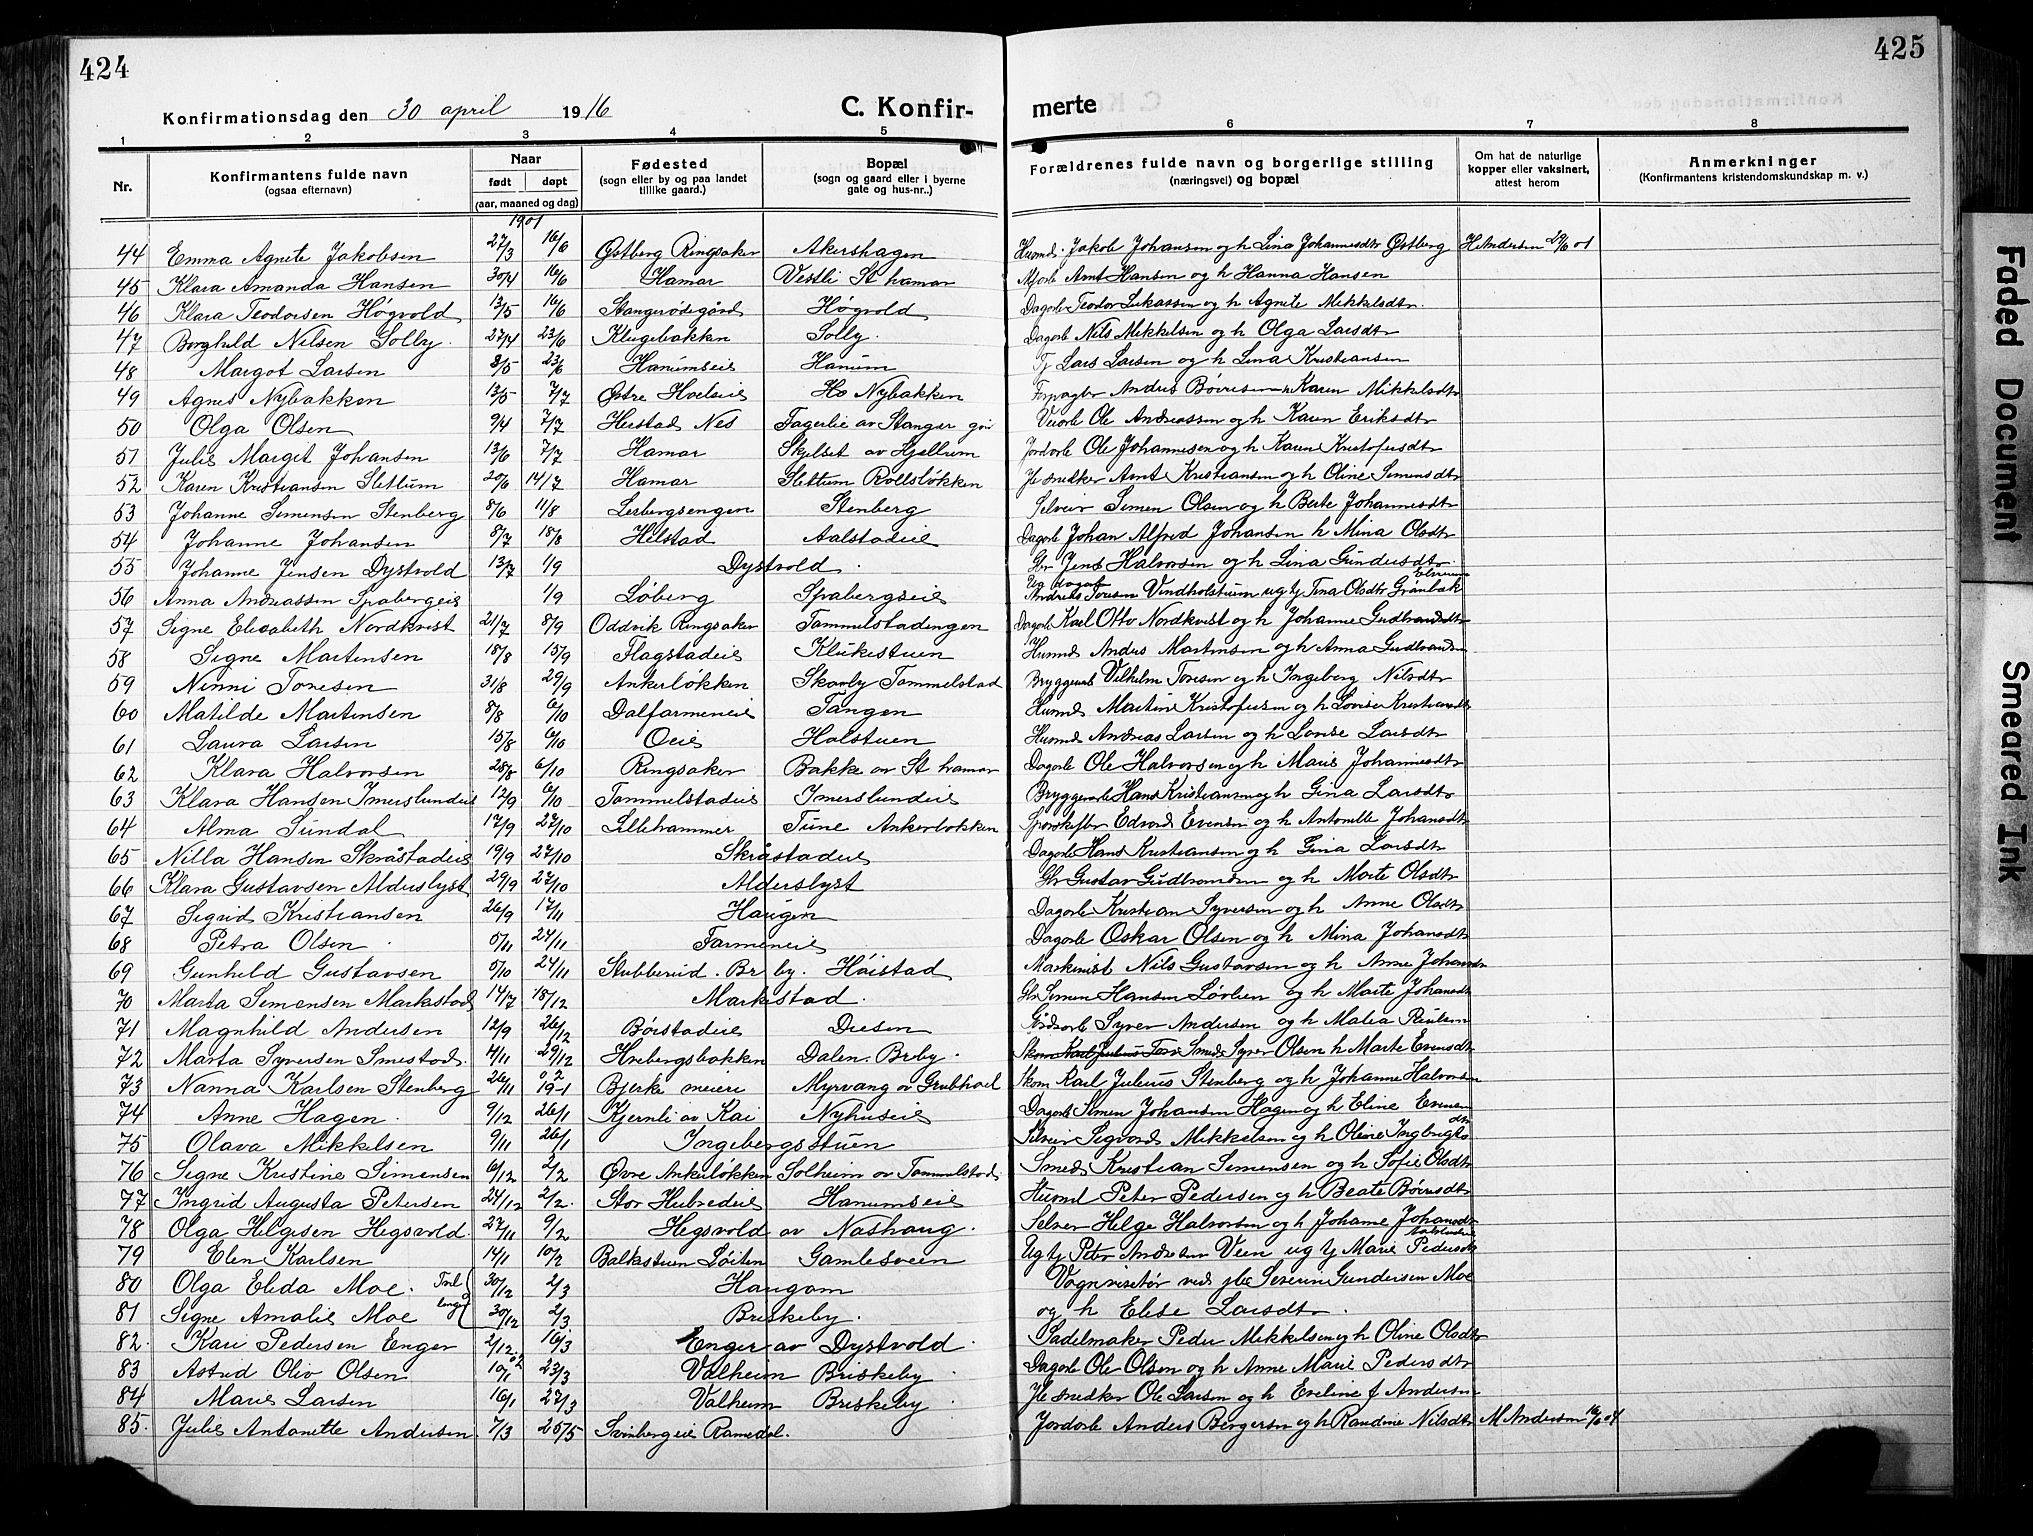 424
425
Konfirmationsdag den 30 april 1916
C. Konfir-
merte
1 2 3 4 5 6 7 8
Nr.
Konfirmantens fulde navn
(ogsaa efternavn)
Naar
født døpt
(aar, maaned og dag)
Fødested
(sogn eller by og paa landet
tillike gaard.)
Bopæl
(sogn og gaard eller i byerne
gate og hus-nr..)
Forældrenes fulde navn og borgerlige stilling
(næringsvei) og bopæl
Om hat de naturlige
kopper eller vaksinert,
attest herom
Anmerkninger
(Konfirmantens kristendomskundskap m. v.)
1901
44 Emma Agnete Jakobsen 27/3 16/6 Østberg Ringsaker Akershagen Husmd. Jakob Johansen og h Lina Johannesdtr Østberg H Andersen 29/6 01
45 Klara Amanda Hansen 30/4 16/6 Hamar Vestli St hamar Arnt Hansen og h Hanna Hansen
46 Klara Teodorsen Høgvold 13/5 16/6 Stangerødegård Høgvold Dagarb Teodor Lukassen og h Agnete Mikkelsdtr.
47 Borghild Nilsen Solby. 27/4 23/6 Klugebakken Solby. Dagarb Nils Mikkelsen og h Olga Larsdtr
48 Margot Larsen 8/5 23/6 Hanumseie Hanum Tj Lars Larsen og h Lina Kristiansen
49 Agnes Nybakken 13/5 7/7 Østre Hoelseie Ho Nybakken Forpagter Anders Børresen h Karen Mikkelsdtr
50 Olga Olsen 9/4 7/7 Herstad Nes Fagerlie av Stanger Veiarb Ole Andreassen og h Karen Eriksdtr
51 Julie Margit Johansen 13/6 7/7 Hamar Skjelset av Hjellum Jordarb Ole Johannesen og h Karen Kristofersdtr
52 Karen Kristiansen Slettum 20/6 14/7 Hamar Slettum Rollsløkken Jb snedker Arnt Kristiansen og h Oline Simensdtr
53 Johanne Simensen Stenberg 8/6 11/8 Lerbergsengen Stenberg Selveier Simen Olsen og h Beate Johannesdtr
54 Johanne Johansen 8/7 18/8 Helstad Aalstadeie Dagarb Johan Alfred Johansen h Mina Olsdtr
55 Johanne Jensen Dystvold 13/7 1/9 Dystvold. Gbr Jens Halvorsen og h Lina Gundersdtr.
56 Anna Andreassen Spabergeie 1/9 Løberg Spabergseie Ug dagarb Andreas Toresen Vindholstuen ug tj Tina Olsdtr Grønbak Elverum
57 Signe Elisabeth Nordkvist 21/7 8/9 Oddvik Ringsaker Tommelstadengen Dagarb Karl Otto Nordkvist og h Johanne Gudbrandsdtr
58 Signe Martinsen 18/8 15/9 Flagstadeie Klukestuen Husmd Anders Martinsen og h Anna Gudbrandsen
59 Ninni Toresen 31/8 29/9 Ankerløkken Skovly Tommelstad Bryggearb Vilhelm Toresen og h Ingeborg Nilsdtr
60 Matilde Martinsen 8/8 6/10 Dalfarmeneie Tangen Husmd Martin Kristofersen og h Lovise Kristiansdtr
61 Laura Larsen 15/8 6/10 Oeie Holstuen Husmd Andreas Larsen og h Lovise Larsdtr
62 Klara Halvorsen 28/8 6/10 Ringsaker Bakke av St hamar Dagarb Ole Halvorsen og h Marie Johannesdtr
63 Klara Hansen Imerslundeie 12/9 6/10 Tommelstadeie Imerslundeie Bryggearb Hans Kristiansen og h Gina Larsdtr
64 Alma Sundal 17/9 27/10 Lillehammer Tune Ankerløkken Sporskifter Edvard Evensen og h Antonette Johansdtr
65 Nilla Hansen Skråstadeie 19/9 27/10 Skråstadeie Dagarb Hans Kristiansen og h Gina Larsdtr
66 Klara Gustavsen Alderslyst 29/9 27/10 Alderslyst Gbr Gustav Gudbrandsen og h Marte Olsdtr
67 Sigrid Kristiansen 26/9 17/11 Haugen Dagarb Kristian Syversen og h Anne Olsdtr
68 Petra Olsen. 5/11 24/11 Farmeneie Dagarb Oskar Olsen og h Mina Johansdtr
69 Gunhild Gustavsen 5/10 24/11 Stubberud. Br by. Høistad Maskinist Nils Gustavsen og h Anne Johansdtr
70 Marta Simensen Markestad 14/7 18/12 Markestad. Gbr Simen Hansen Løvlien og h Marte Johansdtr
71 Magnhild Andersen 12/9 26/12 Børstadeie Diesen Gårdsarb Syver Andersen og h Malea Paulsen
72 Marta Syversen Smestad. 4/11 29/12 Hvebergsbakken Dalen. Brby. Smed Syver Olsen h Marte Evensdtr
73 Nanna Karlsen Stenberg 26/11 02 19-1 Bjerke meieri Myrvang av Grubhoel Skom Karl Julius Stenberg og h Johanne Halvorsen
74 Anne Hagen. 9/12 26/1 Kjernli av Kai Nyhuseie Dagarb Simen Johansen Hagen og h Eline Evensen
75 Olava Mikkelsen 9/11 26/1 Ingebergsstuen Selveier Sigvard Mikkelsen og h Oline Ingbrigts dtr
76 Signe Kristine Simensen 6/12 2/2 Øvre Ankerløkken Solheim av Tommelstad. Smed Kristian Simensen og h Sofie Olsdtr
77 Ingrid Augusta Petersen 24/12 2/2. Stor Hubredeie Hanumseie Husmd Peter Pedersen og h Beate Børresdtr
78 Olga Helgesen Hegsvold. 27/11 9/2 Hegsvold av Nashaug. Selveier Helge Halvorsen og h Johanne Johansdtr
79 Elen Karlsen 14/1 10/2 Bakkstuen Løiten Gamlesveen Ug tj Peter Andersen Veen ug tj Marie Pedersdtr
80 Olga Elida Moe. Tvil 30/12 2/3 Haugom Vognvisetør ved jbr Severin Gundersen Moe
81 Signe Amalie Moe linger 30/12 2/3 Briskeby. og h Elise Larsdtr.
82. Kari Pedersen Enger 2/12 16/3 Enger av Dystvold Sadelmaker Peder Mikkelsen og h Oline Olsdtr
83 Astrid Oliv Olsen 10/1 02 23/3 Valheim Briskeby. Dagarb Ole Olsen og h Anne Marie Pedersdtr
84 Marie Larsen 16/1 27/3 Valheim Briskeby. Jb snedker Ole Larsen og h Eveline f Andersen
85. Julie Antonette Andersen 7/3 25/5 Svinbergeie Romedal. Jordarb Anders Bergersen og h Randine Nilsdtr M Andersen
Faded Document
Smeared Ink